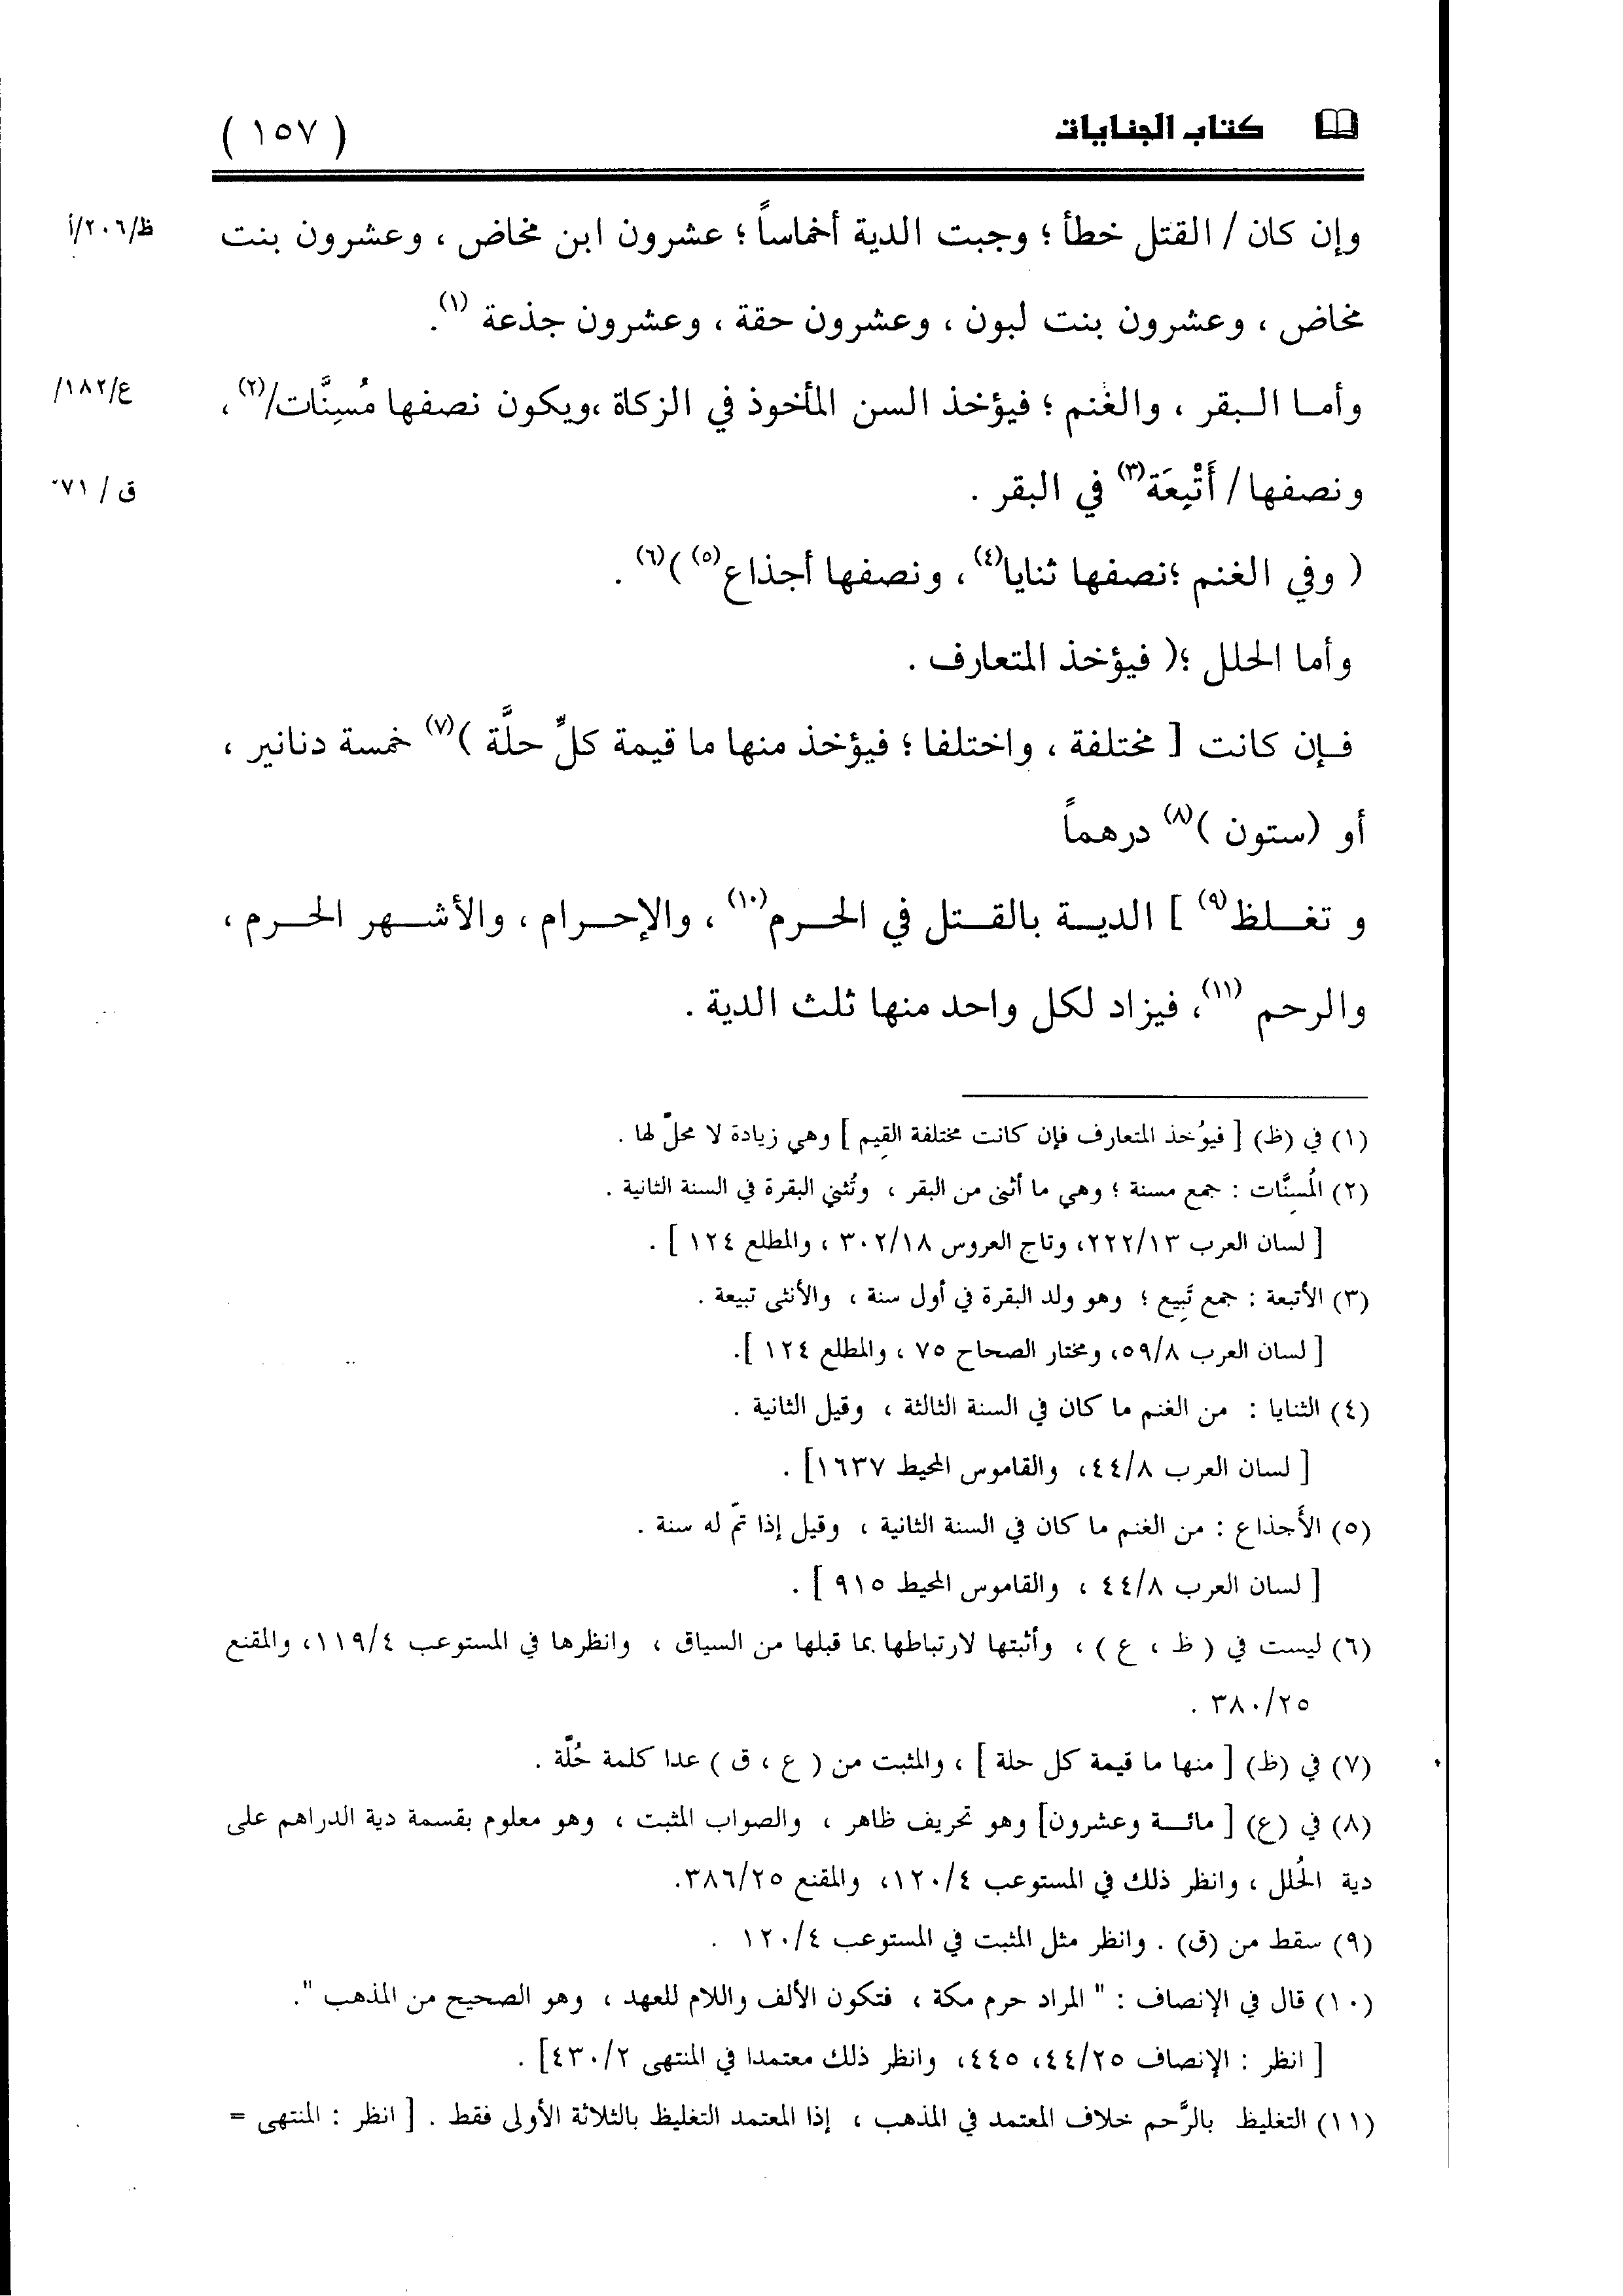 كتاب الجنايات ( ١٥٧ )
وإن كان / القتل خطأ ؛ وجبت الدية أخماساً ؛ عشرون ابن مخاض ، وعشرون بنت ظ/٢٠٦/أ
مخاض ، وعشرون بنت لبون ، وعشرون حقة ، وعشرون جذعة (١).
وأما البقر ، والغنم ؛ فيؤخذ السن المأخوذ في الزكاة ،ويكون نصفها مُسِنَّات/(٢) ، ع/١٨٢/
ونصفها/ أَتْبِعَة(٣) في البقر . ق / ٧١
( وفي الغنم ؛نصفها ثنايا(٤) ، ونصفها أجذاع(٥) )(٦) .
وأما الحلل ؛( فيؤخذ المتعارف .
فإن كانت [ مختلفة ، واختلفا ؛ فيؤخذ منها ما قيمة كلِّ حلَّة )(٧) خمسة دنانير ،
أو (ستون )(٨) درهماً
و تغلظ(٩) ] الدية بالقتل في الحرم(١٠) ، والإحرام ، والأشهر الحرم ،
والرحم (١١)، فيزاد لكل واحد منها ثلث الدية .
(١) في (ظ) [ فيؤخذ المتعارف فإن كانت مختلفة القِيم ] وهي زيادة لا محلّ لها .
(٢) المُسِنَّات : جمع مسنة ؛ وهي ما أثنى من البقر ، وتُثني البقرة في السنة الثانية .
[ لسان العرب ٢٢٢/١٣، وتاج العروس ٣٠٢/١٨ ، والمطلع ١٢٤ ] .
(٣) الأتبعة : جمع تَبِيع ؛ وهو ولد البقرة في أول سنة ، والأنثى تبيعة .
[ لسان العرب ٥٩/٨، ومختار الصحاح ٧٥ ، والمطلع ١٢٤ ].
(٤) الثنايا : من الغنم ما كان في السنة الثالثة ، وقيل الثانية .
[ لسان العرب ٤٤/٨، والقاموس المحيط ١٦٣٧] .
(٥) الأَجذاع : من الغنم ما كان في السنة الثانية ، وقيل إذا تمّ له سنة .
[ لسان العرب ٤٤/٨ ، والقاموس المحيط ٩١٥ ] .
(٦) ليست في ( ظ ، ع ) ، وأثبتها لارتباطها بما قبلها من السياق ، وانظرها في المستوعب ١١٩/٤، والمقنع
٣٨٠/٢٥ .
(٧) في (ظ) [ منها ما قيمة كل حلة ] ، والمثبت من ( ع ، ق ) عدا كلمة حُلّة .
(٨) في (ع) [ مائة وعشرون] وهو تحريف ظاهر ، والصواب المثبت ، وهو معلوم بقسمة دية الدراهم على
دية الحُلل ، وانظر ذلك في المستوعب ١٢٠/٤، والمقنع ٣٨٦/٢٥.
(٩) سقط من (ق) . وانظر مثل المثبت في المستوعب ١٢٠/٤ .
(١٠) قال في الإنصاف : " المراد حرم مكة ، فتكون الألف واللام للعهد ، وهو الصحيح من المذهب ".
[ انظر : الإنصاف ٤٤/٢٥، ٤٤٥، وانظر ذلك معتمدا في المنتهى ٤٣٠/٢] .
(١١) التغليظ بالرَّحم خلاف المعتمد في المذهب ، إذا المعتمد التغليظ بالثلاثة الأولى فقط . [ انظر : المنتهى =